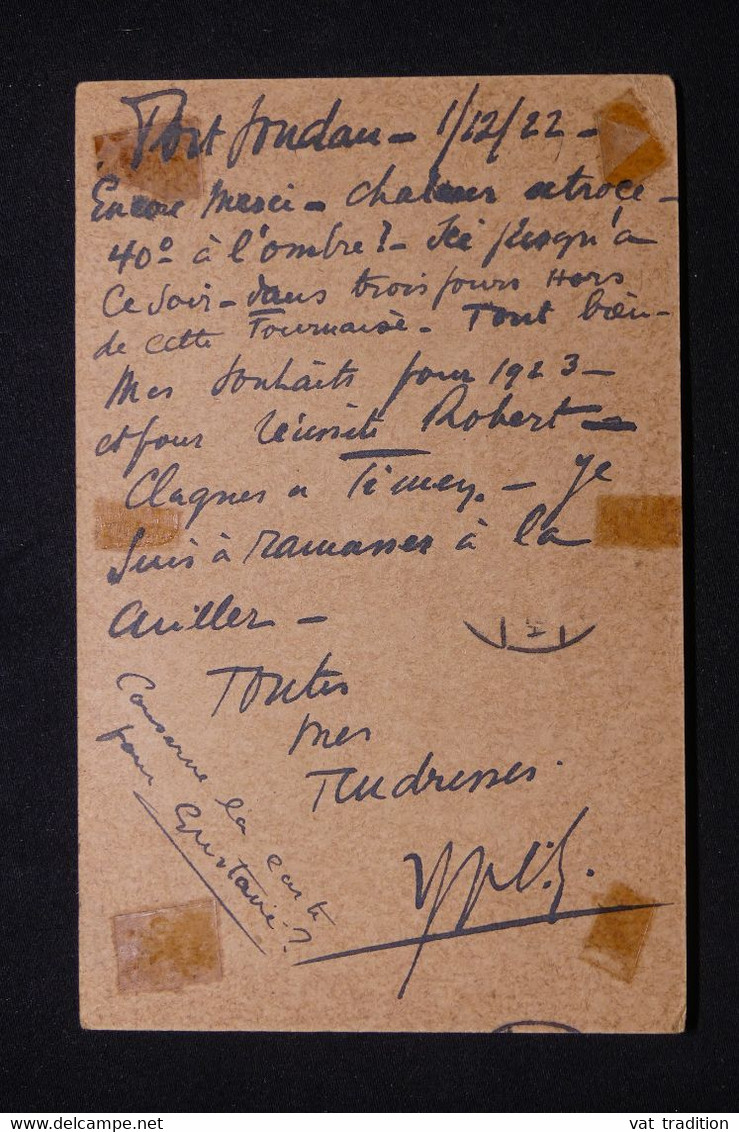 Port Soudan - 1/12/22 -
Encore Merci - Chaleur atroce -
40° à l'ombre ! - Ici jusqu'à
Ce Soir - dans trois jours Hors
de cette Fournaise - Tout bien -
Mes Souhaits pour 1923 -
et pour réussite Robert -
Je
Suis à ramasser à la
cuiller -
Toutes
mes
Tendresses.
Conserve la carte
pour Gustave ?
vat tradition